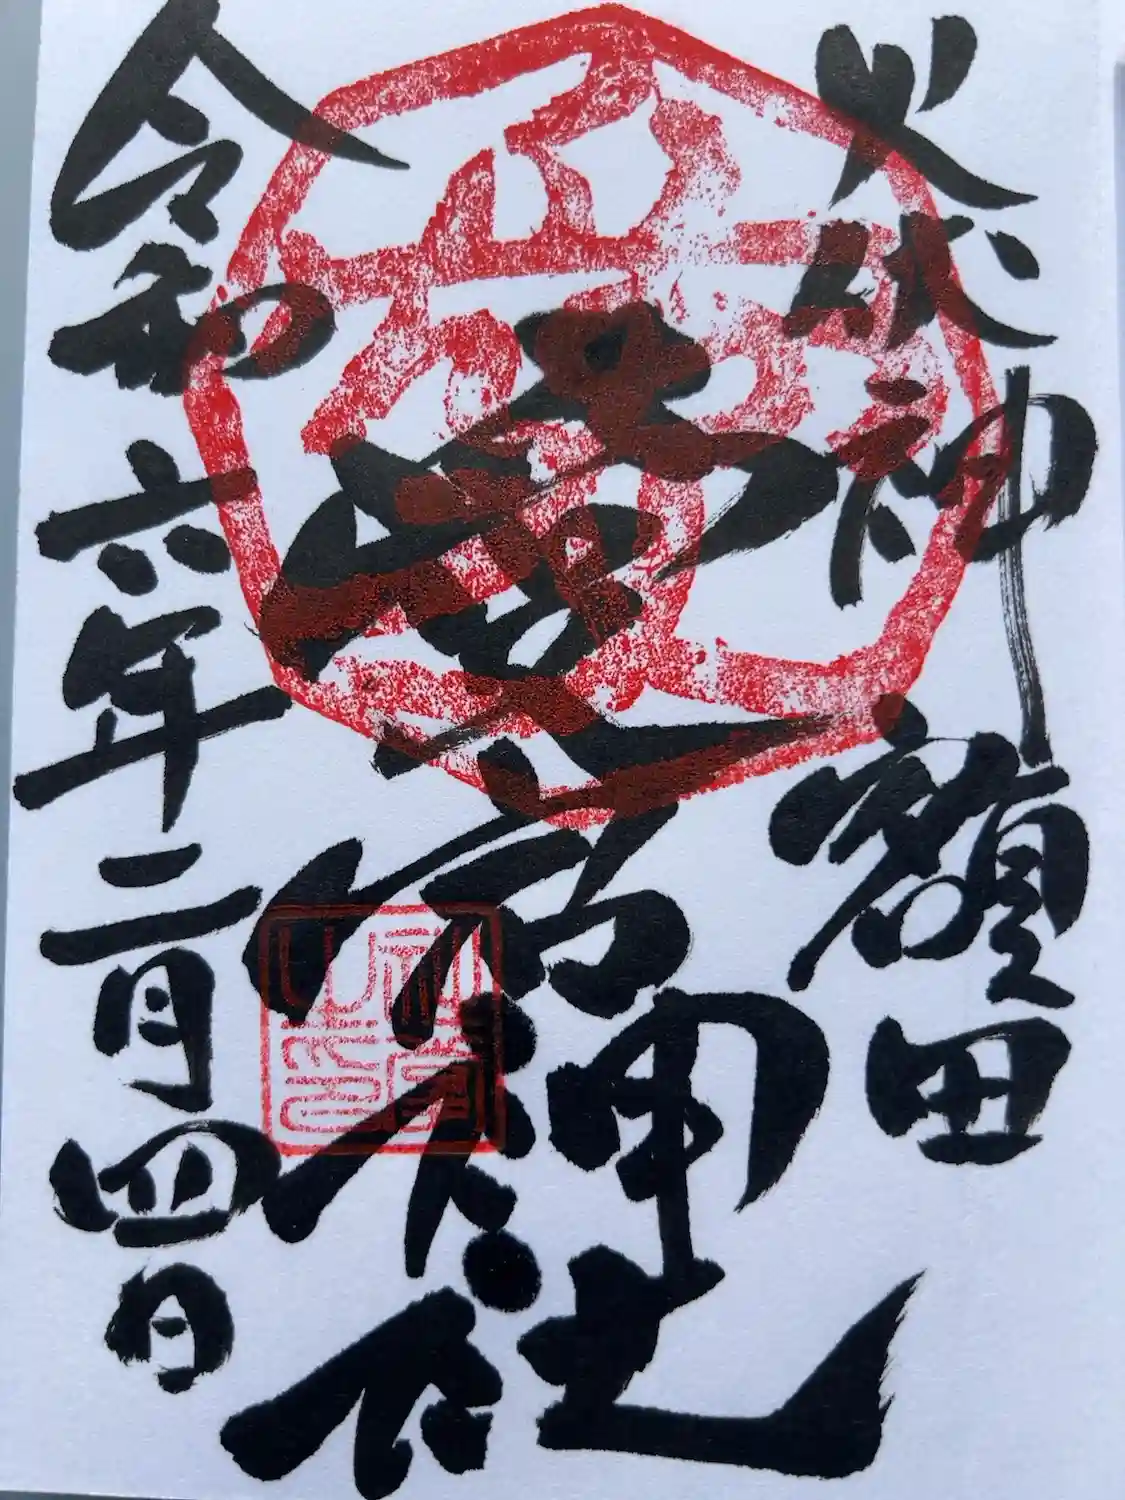 火伏神 額田
愛宕神社
令和六年二月四日